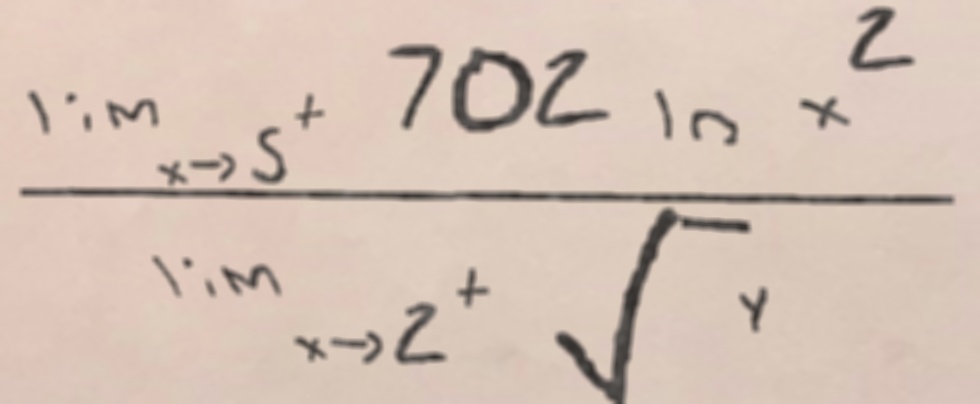 lim x→5⁺ 702 ln x²
lim x→2⁺ √ y